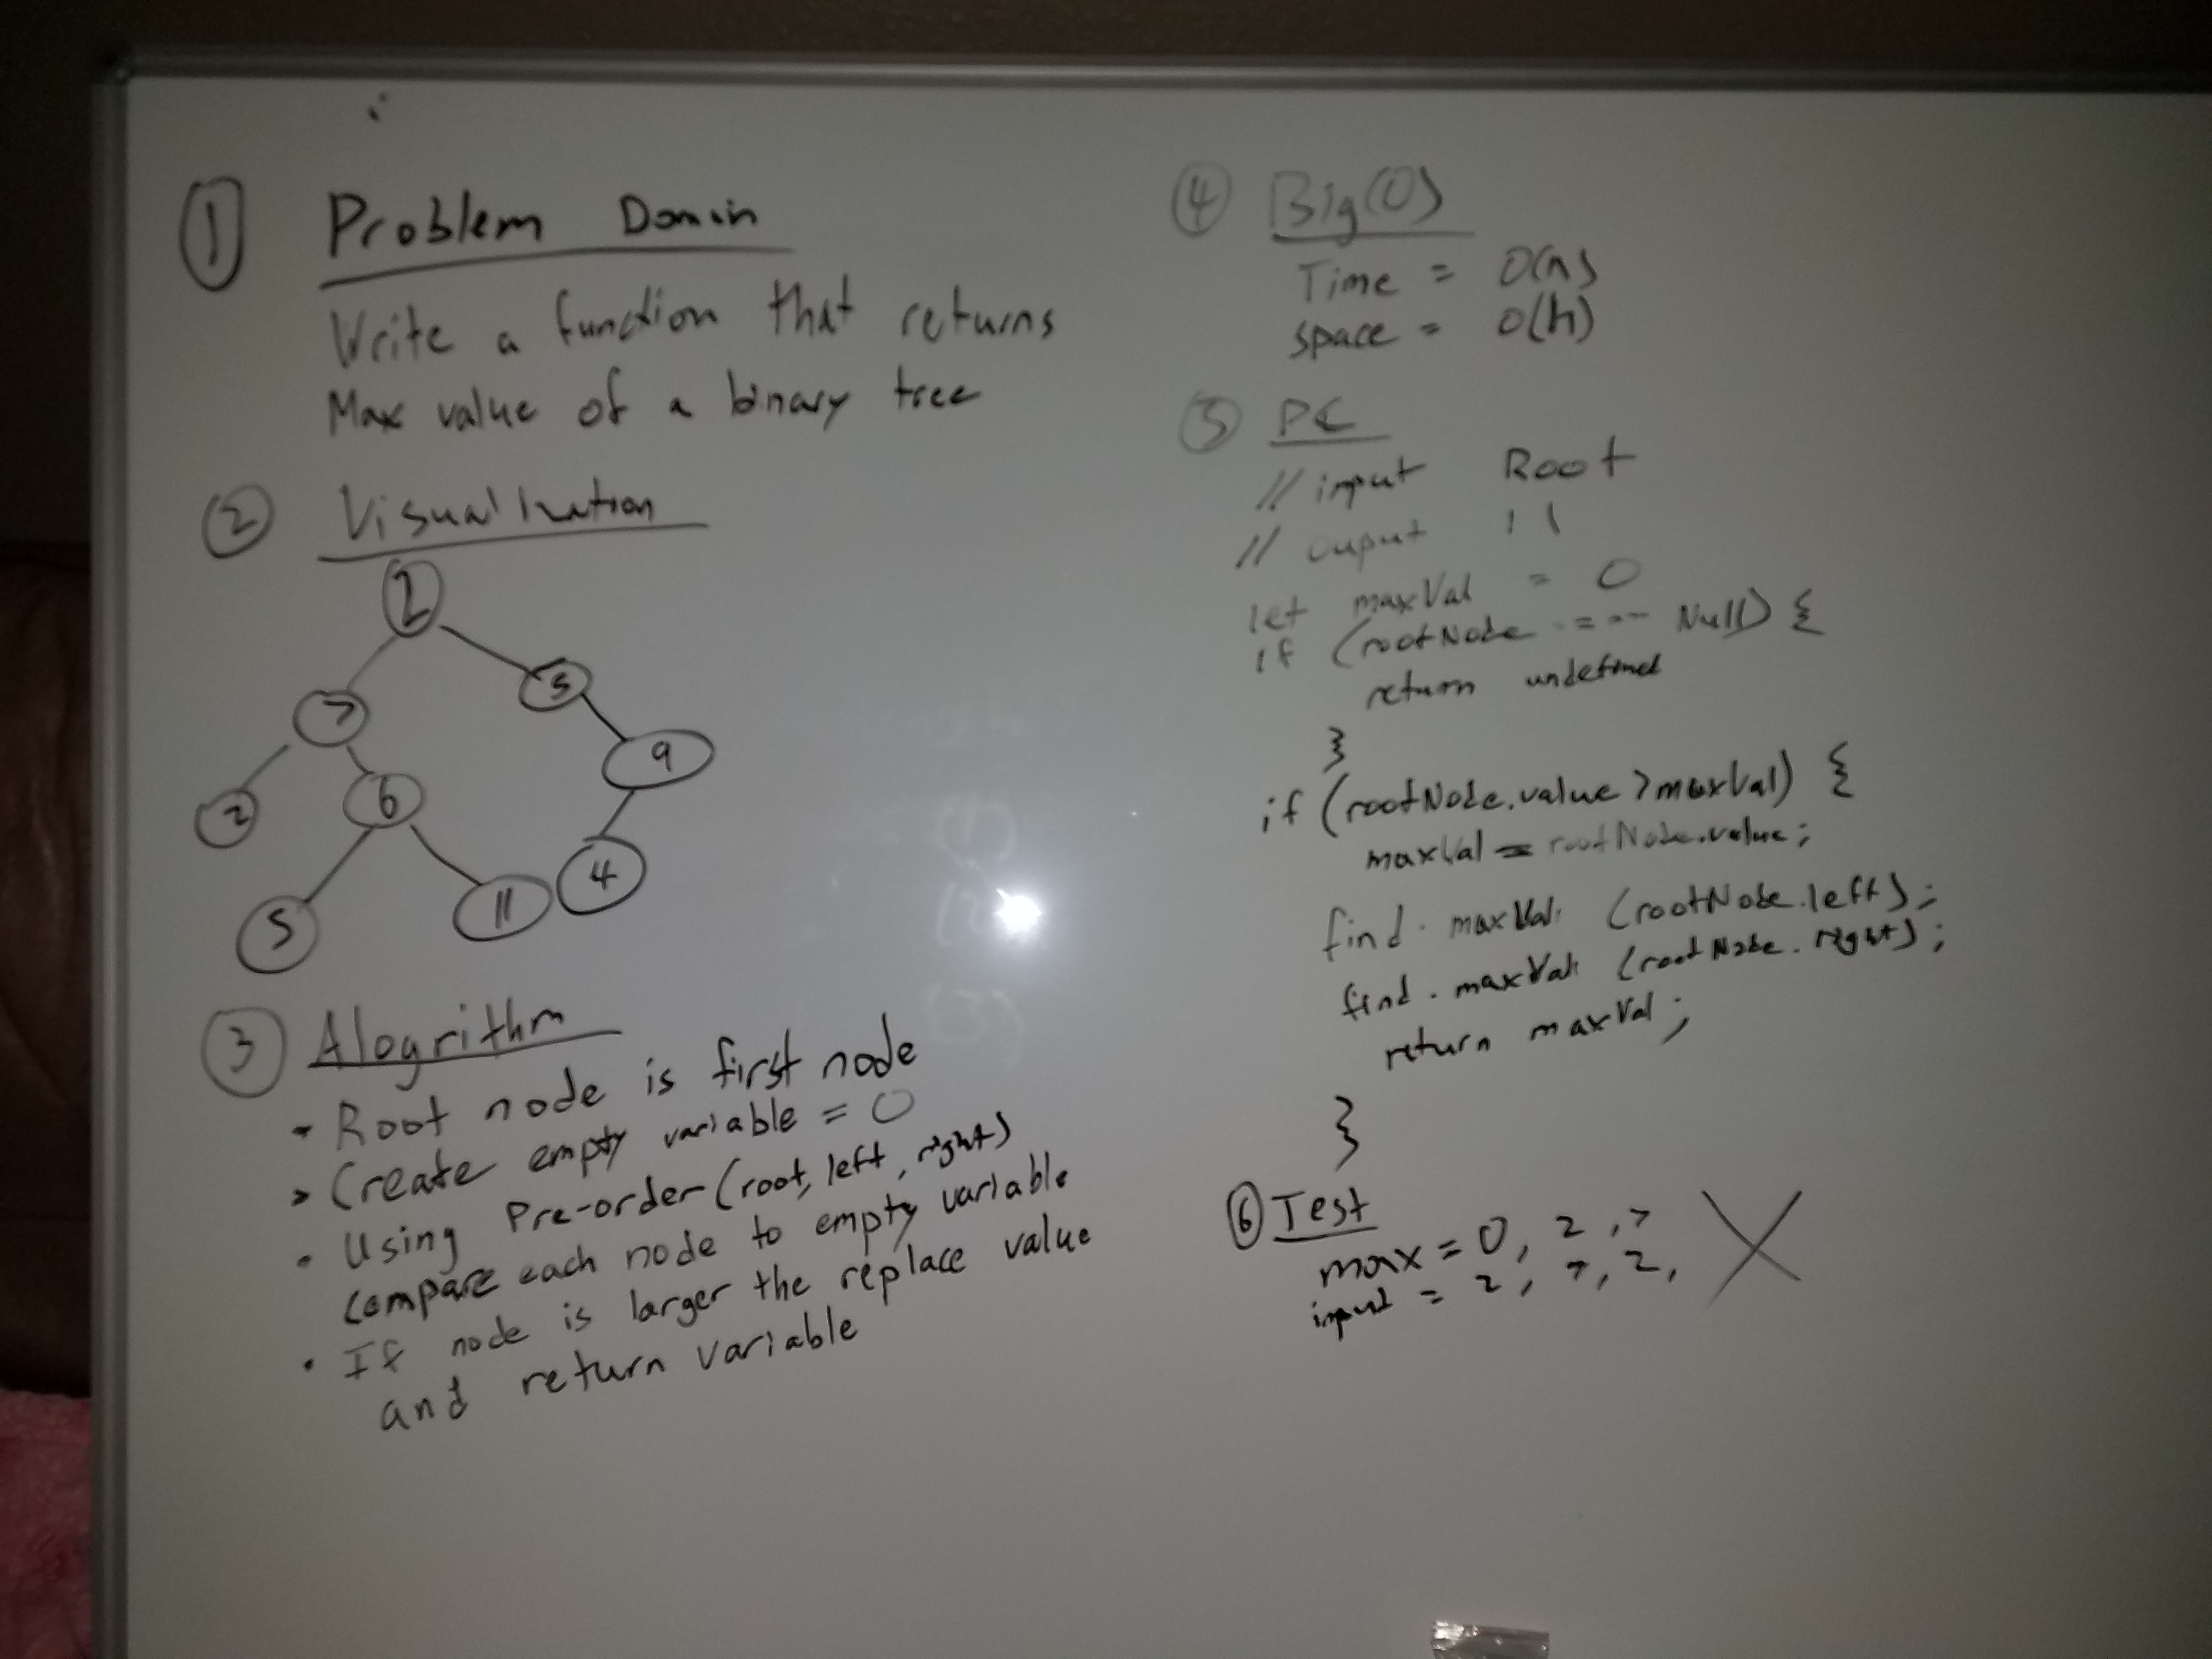 ① Problem Domain
Write a function that returns
Max value of a binary tree
② Visualization
2
7
5
2
6
9
5
11
4
③ Alogrithm
• Root node is first node
• Create empty variable = 0
• Using Pre-order (root, left, right)
compare each node to empty variable
• If node is larger the replace value
and return variable
④ Big(O)
Time = O(n)
space = O(h)
⑤ PC
// input Root
// ouput 11
let maxVal = 0
if (rootNode === Null) {
return undefined
}
if (rootNode.value > maxVal) {
maxVal = rootNode.value;
find. maxVal (rootNode.left);
find. maxVal (rootNode.right);
return maxVal;
}
⑥ Test
max = 0, 2, 7
input = 2, 7, 2,